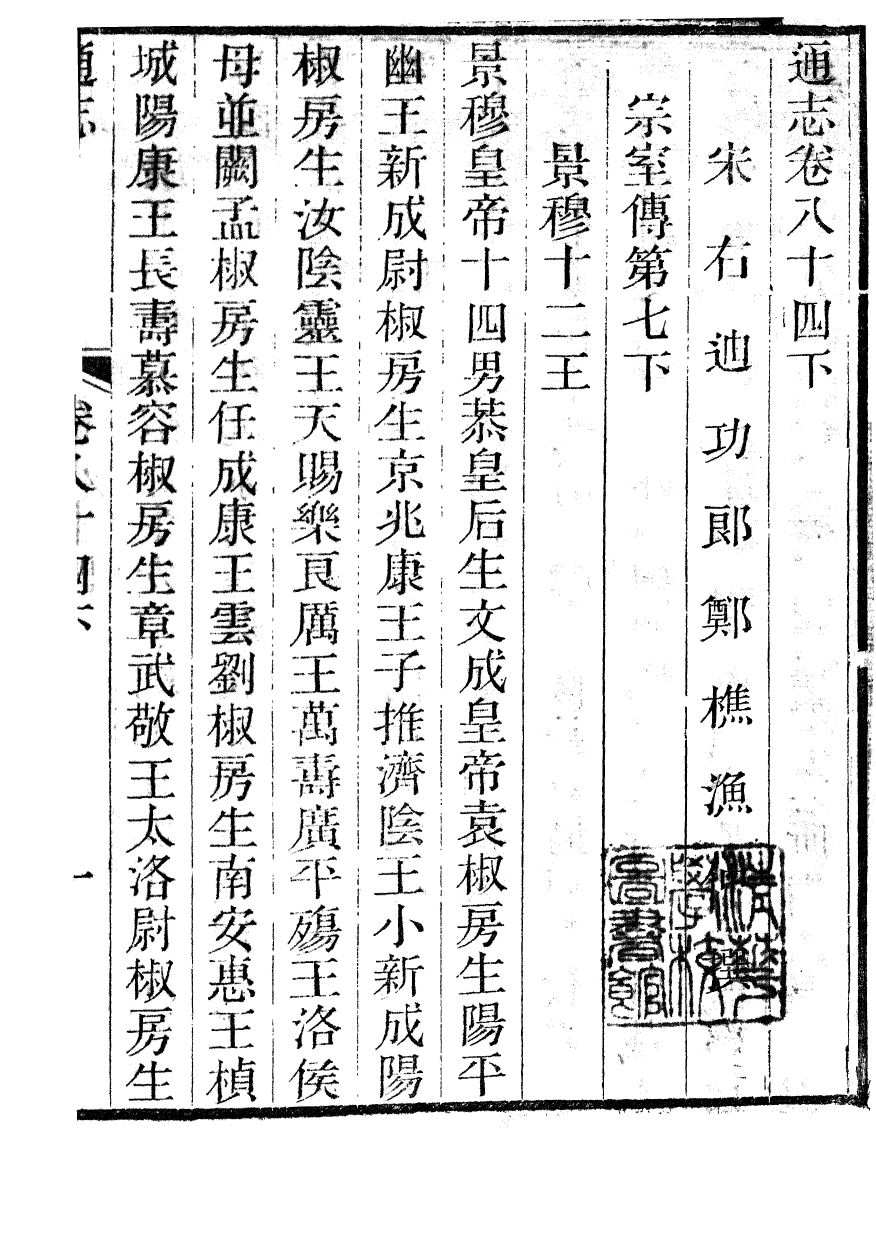 通志卷八十四下
宋右迪功郎鄭樵漁仲撰
宗室傳第七下
景穆十二王
景穆皇帝十四男恭皇后生文成皇帝袁椒房生陽平
幽王新成尉椒房生京兆康王子推濟陰王小新成陽
椒房生汝陰靈王天賜樂良厲王萬壽廣平殤王洛侯
母並闕孟椒房生任成康王雲劉椒房生南安惠王楨
城陽康王長壽慕容椒房生章武敬王太洛尉椒房生
通志 卷八十四下 一
清華學校圖書館